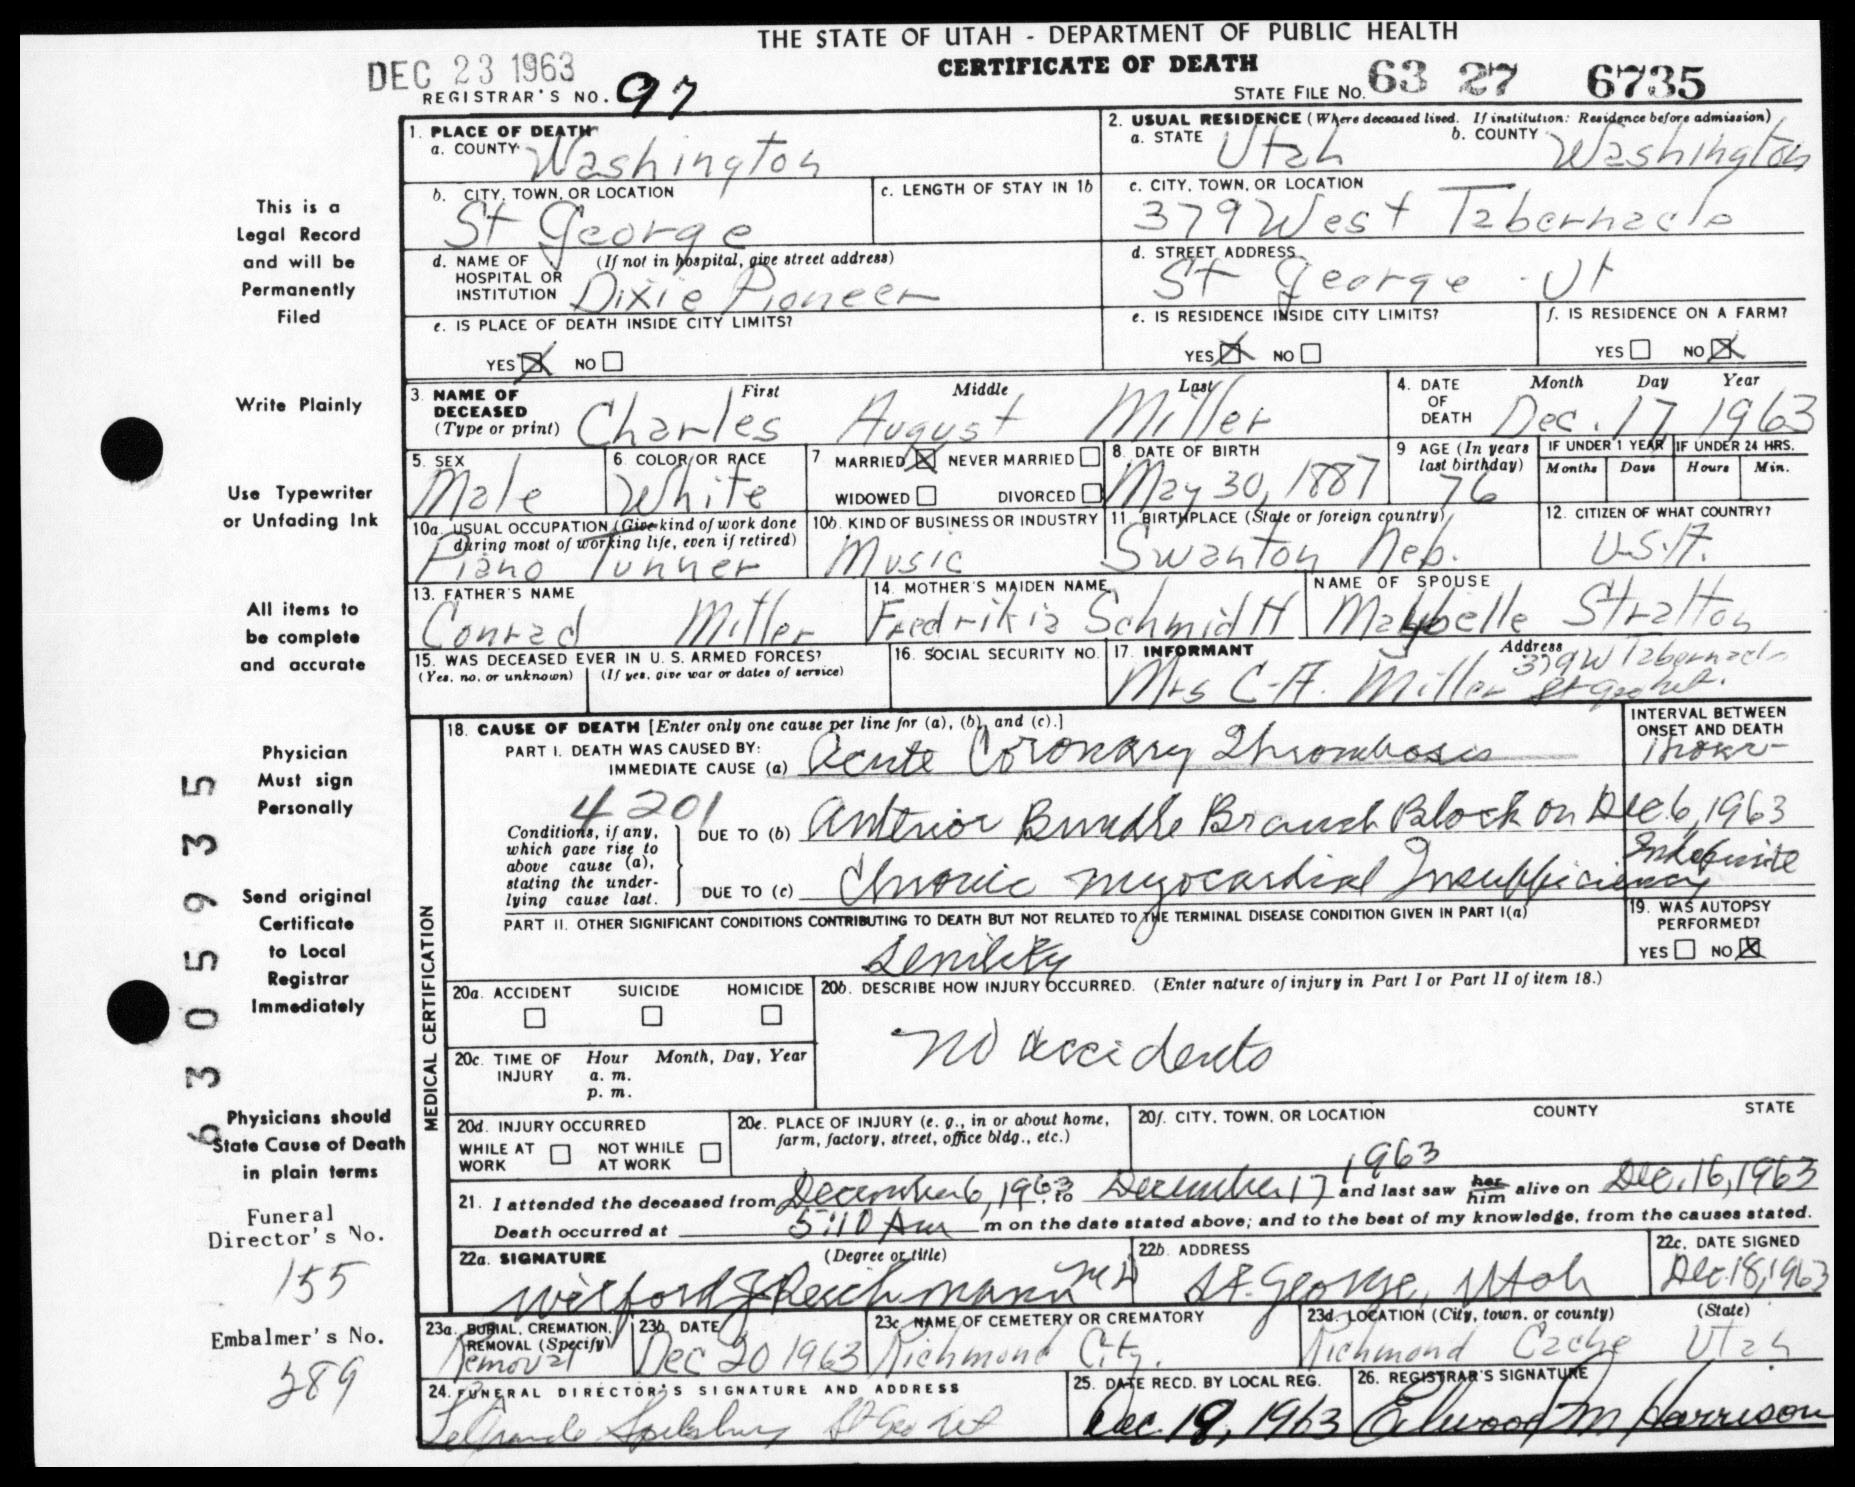 THE STATE OF UTAH - DEPARTMENT OF PUBLIC HEALTH
CERTIFICATE OF DEATH
DEC 23 1963
REGISTRAR'S NO. 97
STATE FILE NO. 63 27 6735
This is a
Legal Record
and will be
Permanently
Filed
Write Plainly
Use Typewriter
or Unfading Ink
All items to
be complete
and accurate
Physician
Must sign
Personally
Send original
Certificate
to Local
Registrar
Immediately
Physicians should
State Cause of Death
in plain terms
Funeral
Director's No.
155
Embalmer's No.
289
6305935
1. PLACE OF DEATH
a. COUNTY Washington
2. USUAL RESIDENCE (Where deceased lived. If institution: Residence before admission)
a. STATE Utah b. COUNTY Washington
b. CITY, TOWN, OR LOCATION St George
c. LENGTH OF STAY IN 1b
c. CITY, TOWN, OR LOCATION
379 West Tabernacle
d. NAME OF HOSPITAL OR INSTITUTION (If not in hospital, give street address)
Dixie Pioneer
d. STREET ADDRESS
St George - Ut
e. IS PLACE OF DEATH INSIDE CITY LIMITS?
YES X NO
e. IS RESIDENCE INSIDE CITY LIMITS?
YES X NO
f. IS RESIDENCE ON A FARM?
YES NO X
3. NAME OF DECEASED (Type or print)
First Middle Last
Charles August Miller
4. DATE OF DEATH Month Day Year
Dec. 17 1963
5. SEX Male
6. COLOR OR RACE White
7 MARRIED X NEVER MARRIED
WIDOWED DIVORCED
8. DATE OF BIRTH
May 30, 1887
9 AGE (In years last birthday)
76
IF UNDER 1 YEAR
Months Days
IF UNDER 24 HRS.
Hours Min.
10a. USUAL OCCUPATION (Give kind of work done during most of working life, even if retired)
Piano Tunner
10b. KIND OF BUSINESS OR INDUSTRY
Music
11. BIRTHPLACE (State or foreign country)
Swanton Neb.
12. CITIZEN OF WHAT COUNTRY?
U.S.A.
13. FATHER'S NAME
Conrad Miller
14. MOTHER'S MAIDEN NAME
Fredrikia Schmidtt
NAME OF SPOUSE
Maybelle Stratton
15. WAS DECEASED EVER IN U. S. ARMED FORCES?
(Yes, no, or unknown) (If yes, give war or dates of service)
16. SOCIAL SECURITY NO.
17. INFORMANT Address
Mrs C.A. Miller 379 W Tabernacle
MEDICAL CERTIFICATION
18. CAUSE OF DEATH [Enter only one cause per line for (a), (b), and (c).]
INTERVAL BETWEEN ONSET AND DEATH
PART I. DEATH WAS CAUSED BY:
IMMEDIATE CAUSE (a) Acute Coronary Thrombosis
4201
Conditions, if any, which gave rise to above cause (a), stating the underlying cause last.
DUE TO (b) Anterior Bundle Branch Block on Dec 6, 1963
DUE TO (c) Chronic myocardial Insufficiency Indefinite
PART II. OTHER SIGNIFICANT CONDITIONS CONTRIBUTING TO DEATH BUT NOT RELATED TO THE TERMINAL DISEASE CONDITION GIVEN IN PART I(a)
Senility
19. WAS AUTOPSY PERFORMED?
YES NO X
20a. ACCIDENT SUICIDE HOMICIDE
20b. DESCRIBE HOW INJURY OCCURRED. (Enter nature of injury in Part I or Part II of item 18.)
No accidents
20c. TIME OF INJURY Hour Month, Day, Year
a. m.
p. m.
20d. INJURY OCCURRED
WHILE AT WORK NOT WHILE AT WORK
20e. PLACE OF INJURY (e. g., in or about home, farm, factory, street, office bldg., etc.)
20f. CITY, TOWN, OR LOCATION COUNTY STATE
21. I attended the deceased from December 6, 1963 to December 17 1963 and last saw her him alive on Dec. 16, 1963
Death occurred at 5:10 Am m on the date stated above; and to the best of my knowledge, from the causes stated.
22a. SIGNATURE (Degree or title)
Wilford J Reichmann MD
22b. ADDRESS
St. George, Utah
22c. DATE SIGNED
Dec 18, 1963
23a. BURIAL, CREMATION, REMOVAL (Specify)
Removal
23b. DATE
Dec 20 1963
23c. NAME OF CEMETERY OR CREMATORY
Richmond City.
23d. LOCATION (City, town, or county) (State)
Richmond Cache Utah
24. FUNERAL DIRECTOR'S SIGNATURE AND ADDRESS
25. DATE RECD. BY LOCAL REG.
Dec. 19, 1963
26. REGISTRAR'S SIGNATURE
Elwood M Harrison